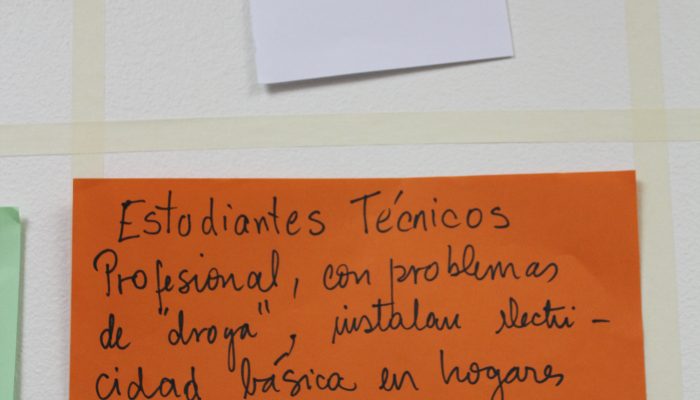 Estudiantes Técnicos
Profesional, con problemas
de "droga", instalan electri-
cidad básica en hogares